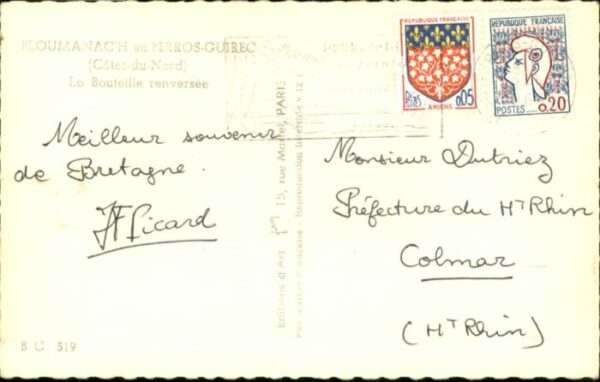 PLOUMANAC'H en PERROS-GUIREC
(Côtes-du-Nord)
La Bouteille renversée
Meilleur souvenir
de Bretagne.
JF Picard
B C 519
Editions d'Art
15, rue Martel, PARIS
REPUBLIQUE FRANÇAISE
POSTES
0,05
AMIENS
REPUBLIQUE FRANÇAISE
POSTES 0,20
Monsieur Dutriez
Préfecture du Ht Rhin
Colmar
(Ht Rhin)